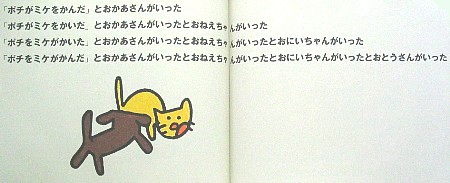 「ポチがミケをかんだ」とおかあさんがいった
「ポチをミケがかいた」とおかあさんがいったとおねえちゃんがいった
「ポチがミケをかいた」とおかあさんがいったとおねえちゃんがいったとおにいちゃんがいった
「ポチをミケがかんだ」とおかあさんがいったとおねえちゃんがいったとおにいちゃんがいったとおとうさんがいった